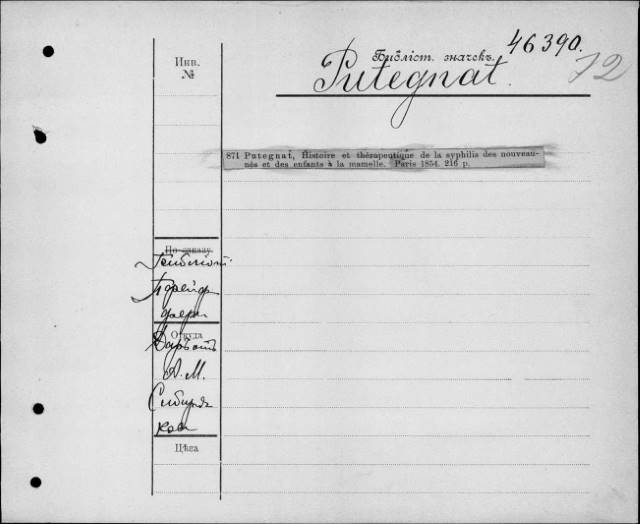 46390.
Инв.
№
Библіот. значекъ.
72
Putegnat.
871 Putegnat, Histoire et thérapeutique de la syphilis des nouveau-
nés et des enfants à la mamelle. Paris 1854. 216 p.
По заказу
Откуда
Даръ отъ
А. М.
Сибиря
кова
Цѣна